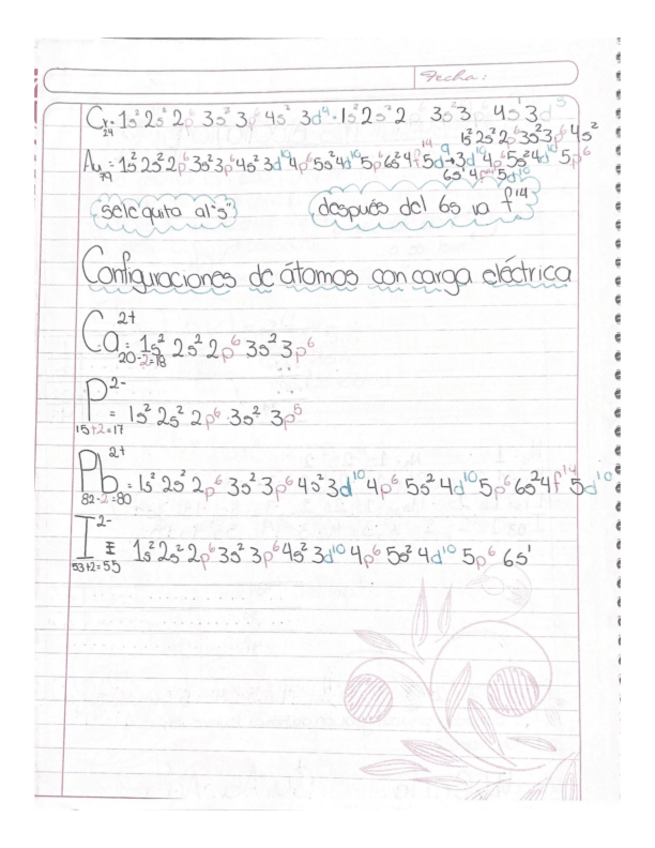 Fecha:
Cr: 1s² 2s² 2p⁶ 3s² 3p⁶ 4s² 3d⁴ · 1s² 2s² 2 3s² 3 4s¹ 3d⁵
24
1s² 2s² 2p⁶ 3s² 3p⁶ 4s²
Au: 1s² 2s² 2p⁶ 3s² 3p⁶ 4s² 3d¹⁰ 4p⁶ 5s² 4d¹⁰ 5p⁶ 6s² 4f¹⁴ 5d⁹ → 3d¹⁰ 4p⁶ 5s² 4d¹⁰ 5p⁶
79
6s¹ 4f¹⁴ 5d¹⁰
se le quita al "s" después del 6s va f¹⁴
Configuraciones de átomos con carga eléctrica
Ca²⁺ = 1s² 2s² 2p⁶ 3s² 3p⁶
20-2=18
P²⁻ = 1s² 2s² 2p⁶ 3s² 3p⁵
15+2=17
Pb²⁺ = 1s² 2s² 2p⁶ 3s² 3p⁶ 4s² 3d¹⁰ 4p⁶ 5s² 4d¹⁰ 5p⁶ 6s² 4f¹⁴ 5d¹⁰
82-2=80
I²⁻ = 1s² 2s² 2p⁶ 3s² 3p⁶ 4s² 3d¹⁰ 4p⁶ 5s² 4d¹⁰ 5p⁶ 6s¹
53+2=55